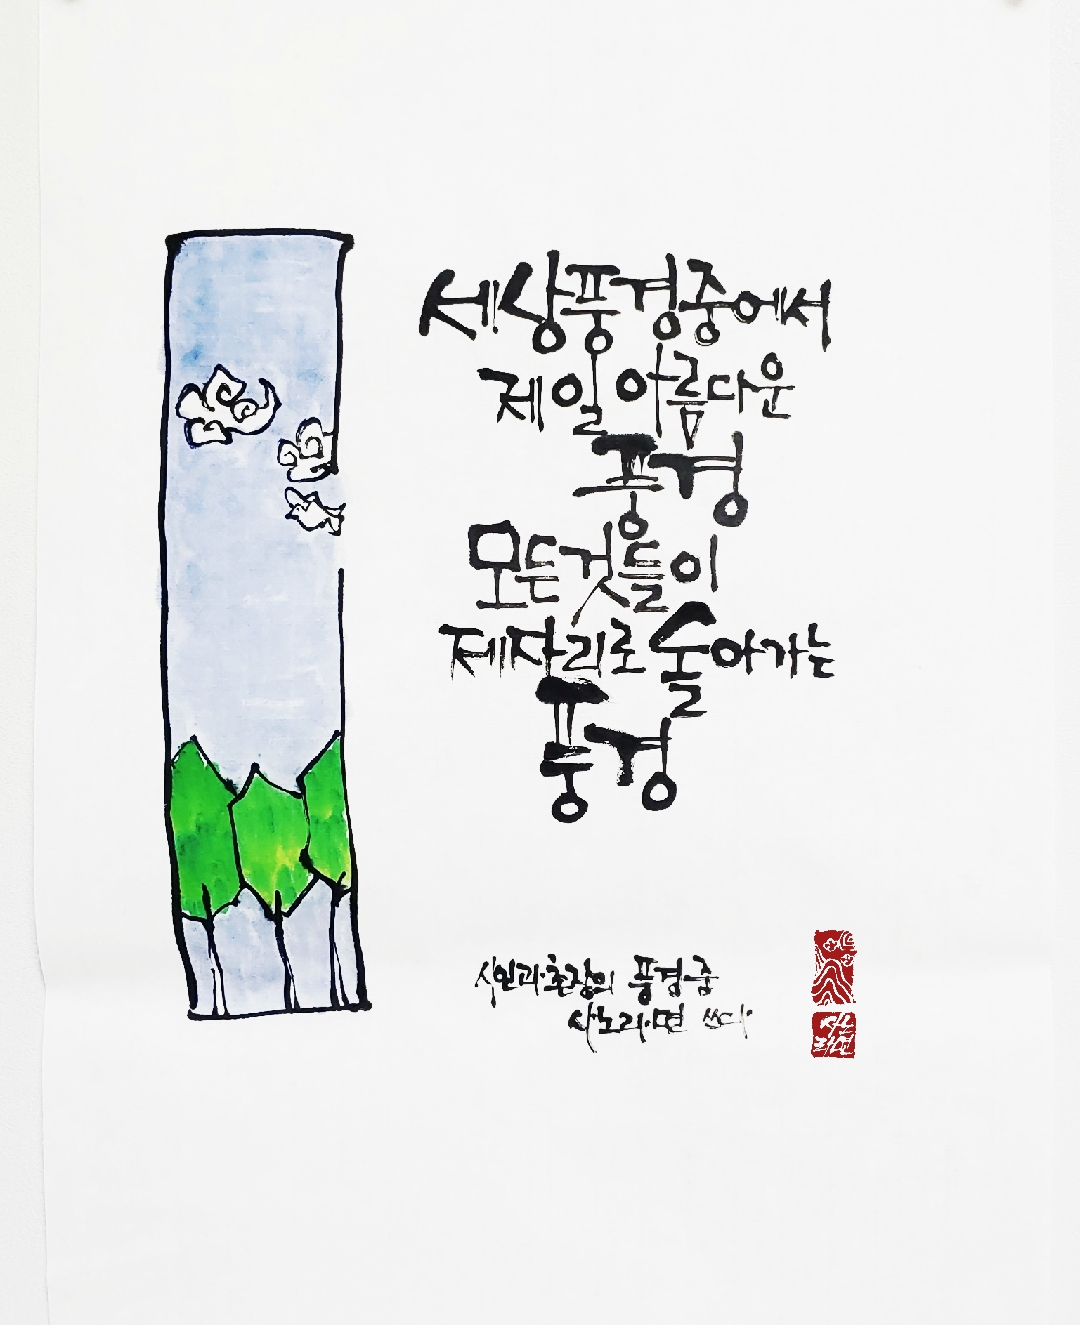 세상풍경중에서
제일아름다운
풍경
모든것들이
제자리로돌아가는
풍경
시인과촌장의 풍경중
쓰다